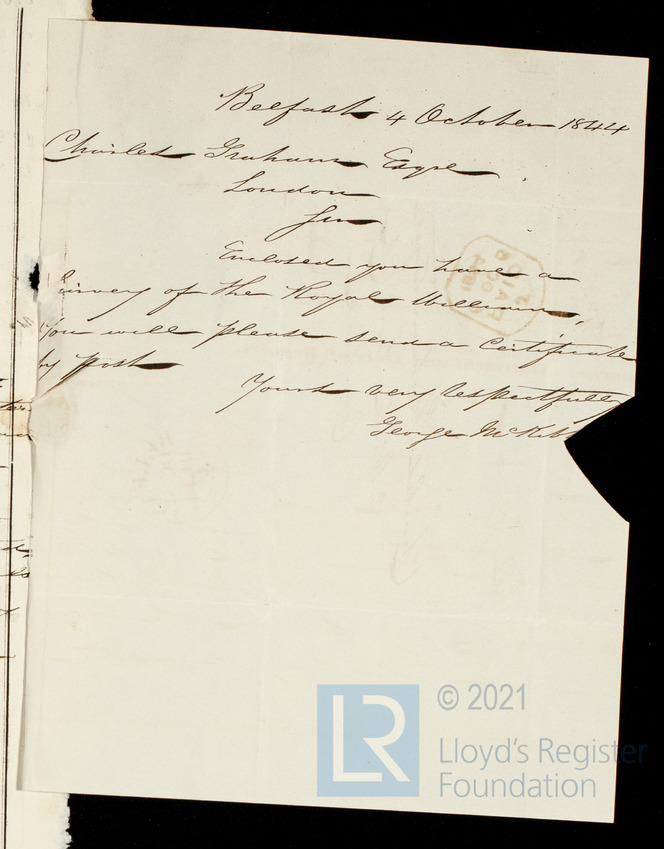 Belfast 4 October 1844
Charles Graham Esqre
London
Sir
Enclosed you have a
Survey of the Royal William,
You will please send a Certificate
by post
Yours very respectfully
George McKib
LR
© 2021
Lloyd's Register
Foundation